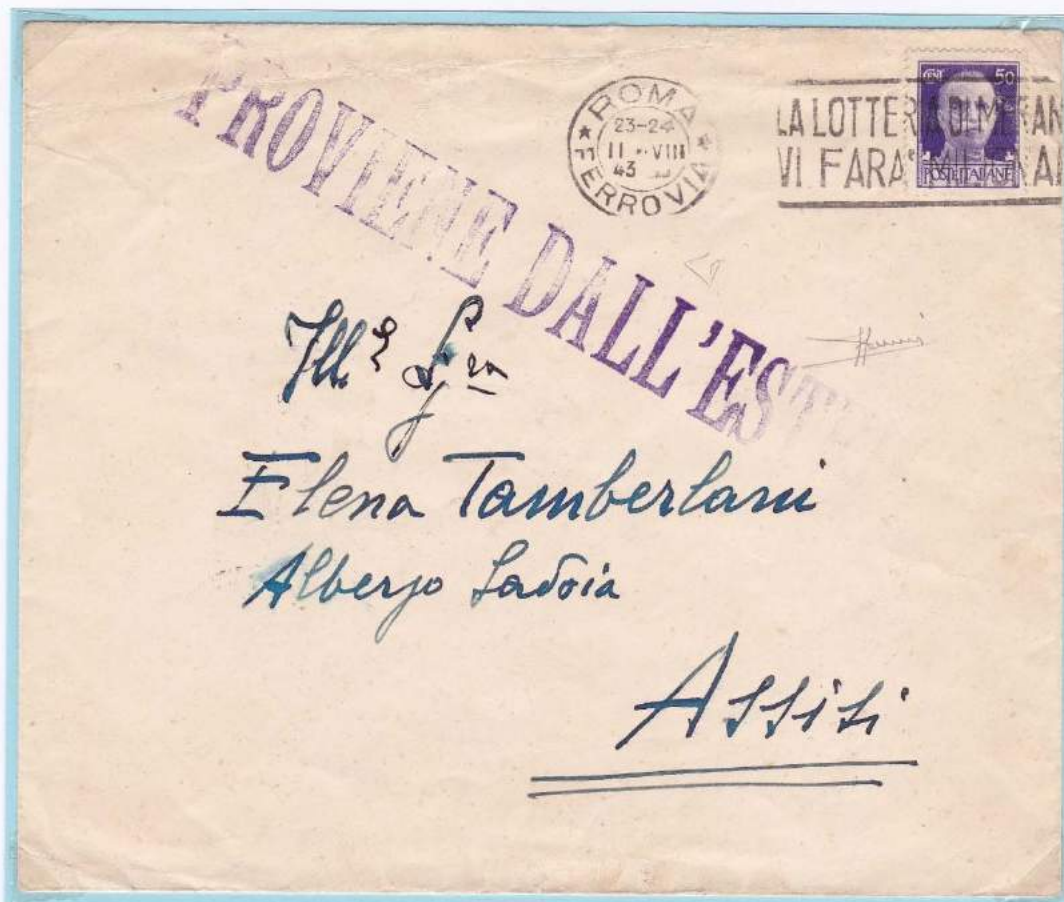 PROVIENE DALL'EST
ROMA
23-24
11 VIII
43
FERROVIA
50
LA LOTTERIA DI MERAN
VI FARA' MILIONAI
POSTE ITALIANE
Ill.
Elena Tamberlani
Albergo Savoia
Assisi